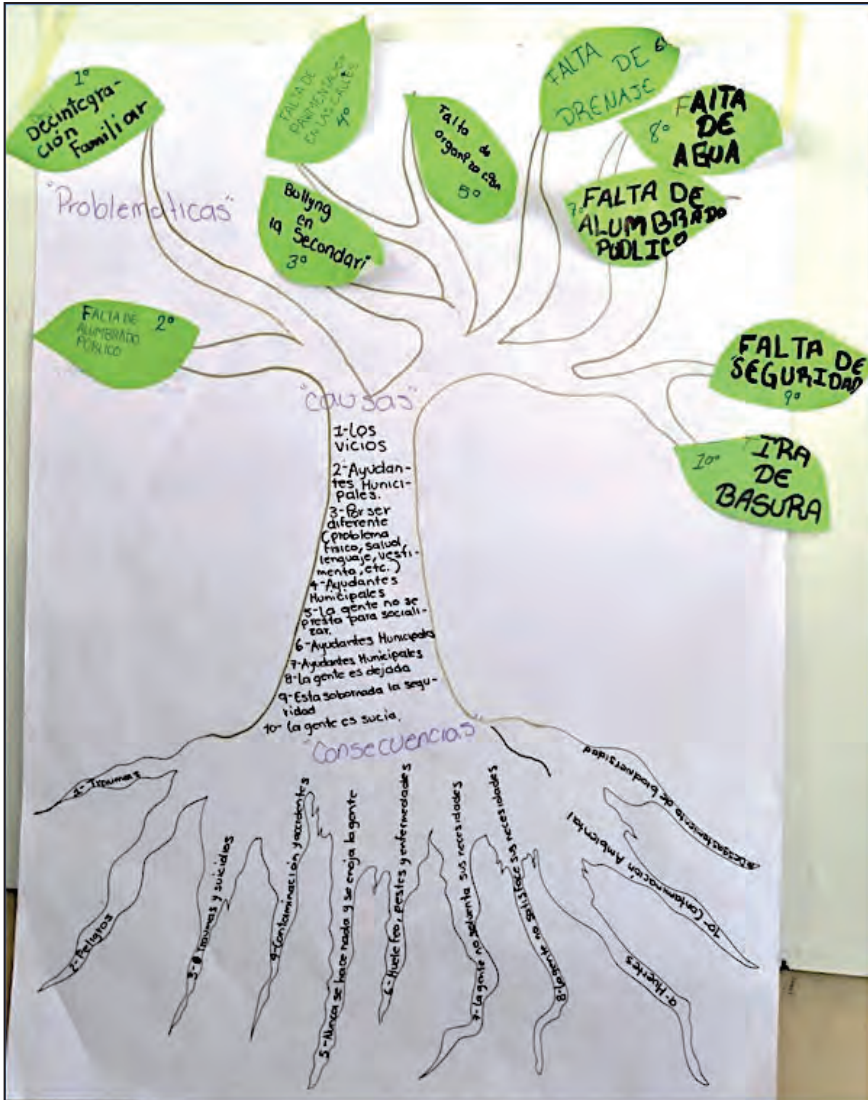 1º
Decintegra-
ción
Familiar
FALTA DE
PAVIMENTACION
EN LAS CALLES
4º
Falta de
organización
5º
6º
FALTA
DE
DRENAJE
8º
FALTA
DE
AGUA
"Problematicas"
Bullyng
en
la Secondari
3º
7º
FALTA DE
ALUMBRADO
PÚBLICO
FALTA DE
ALUMBRADO
PÚBLICO
2º
FALTA DE
SEGURIDAD
9º
10º
TIRA
DE
BASURA
"Causas"
1-Los
vicios
2-Ayudan-
tes Munici-
pales.
3-Por ser
diferente
(problema
físico, salud,
lenguaje, vesti-
menta, etc.)
4-Ayudantes
Municipales
5-La gente no se
presta para sociali-
zar.
6-Ayudantes Municipales
7-Ayudantes Municipales
8-La gente es dejada
9-Esta sobornada la segu-
ridad
10- La gente es sucia.
"Consecuencias"
1-Traumas
2-Peligros
3- Traumas y suicidios
4-Contaminación y accidentes
5-Nunca se hace nada y se enoja la gente
6-Huele feo, pestes y enfermedades
7-La gente no solventa sus necesidades
8-La gente no satisface sus necesidades
9-Muertes
10-Contaminación Ambiental
Desgastamiento de biodiversidad